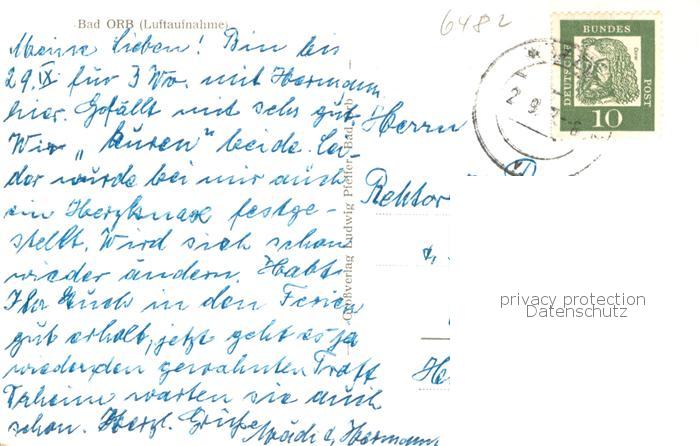 Bad ORB (Luftaufnahme)
6482
Meine Lieben! Bin bis
29.IX für 3 Wo. mit Hermann
hier. Gefällt mit sehr gut.
Wir "kuren" beide. Lei-
der wurde bei mir auch
ein Herzknax festge-
stellt. Wird sich schon
wieder ändern. Habt
Ihr Euch in den Ferien
gut erholt, jetzt geht es ja
wieder den gewohnten Trott
Daheim warten sie auch
schon. Herzl. Grüße
Mädi & Hermann
Großverlag Ludwig Pfeiffer, Bad
Herrn
Rektor
DEUTSCHE BUNDES POST
10
privacy protection
Datenschutz